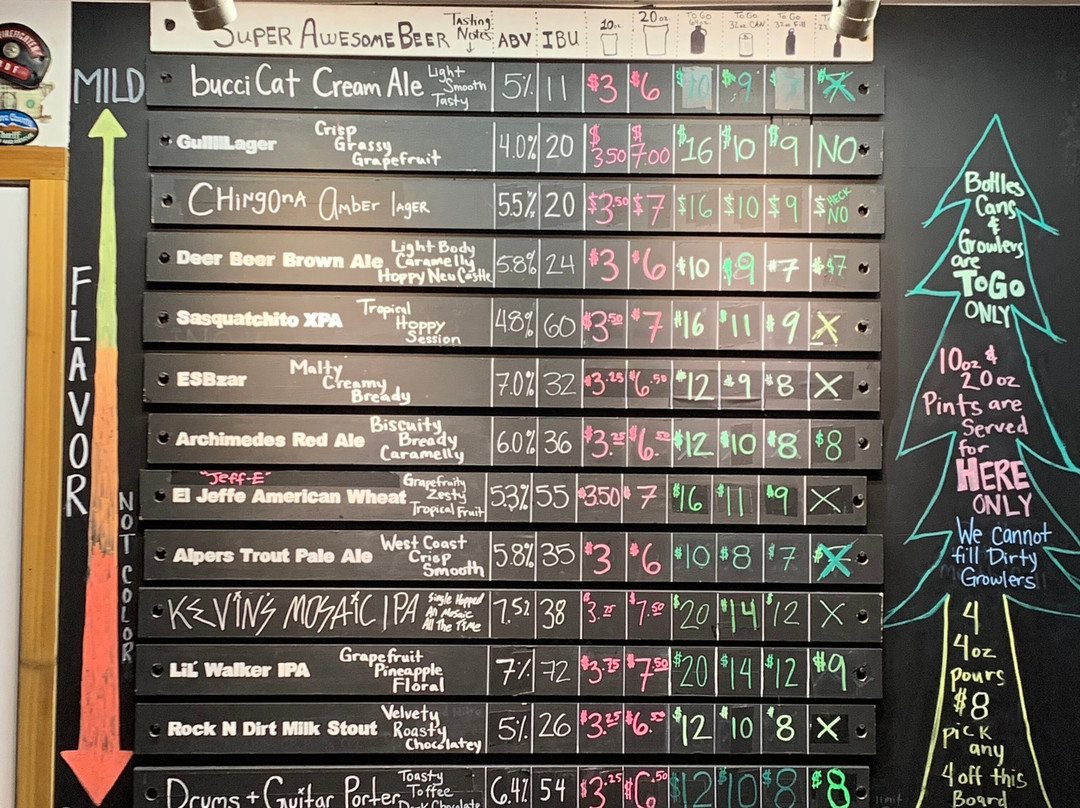 SUPER AWESOMEBEER Tasting Notes ABV IBU 10oz 20oz TO GO 64oz TO GO 32oz CAN TO GO 32oz Fill TO GO
MILD
bucciCat Cream Ale Light Smooth Tasty 5% 11 $3 $6 $10 $9 $7 $7
GullllLager Crisp Grassy Grapefruit 4.0% 20 $3.50 $7.00 $16 $10 $9 NO
CHINGONA Amber lager 5.5% 20 $3.50 $7 $16 $10 $9 $ HECK NO
Deer Beer Brown Ale Light Body Caramelly Hoppy New Castle 5.8% 24 $3 $6 $10 $9 $7 $7
Sasquatchito XPA Tropical Hoppy Session 4.8% 60 $3.50 $7 $16 $11 $9 X
ESBzar Malty Creamy Bready 7.0% 32 $3.25 $6.50 $12 $9 $8 X
Archimedes Red Ale Biscuity Bready Caramelly 6.0% 36 $3.25 $6.50 $12 $10 $8 $8
"Jeff-E"
El Jeffe American Wheat Grapefruity Zesty Tropical Fruit 5.3% 55 $3.50 $7 $16 $11 $9 X
Alpers Trout Pale Ale West Coast Crisp Smooth 5.8% 35 $3 $6 $10 $8 $7 $X
KEVIN'S MOSAIC IPA Single Hopped An Mosaic All The Time 7.5% 38 $3.75 $7.50 $20 $14 $12 X
LiL' Walker IPA Grapefruit Pineapple Floral 7% 72 $3.75 $7.50 $20 $14 $12 $9
Rock N Dirt Milk Stout Velvety Roasty Chocolatey 5% 26 $3.25 $6.50 $12 $10 $8 X
Drums + Guitar Porter Toasty Toffee Dark Chocolate 6.4% 54 $3.25 $6.50 $12 $10 $8 $8
FLAVOR
NOT COLOR
Bottles
Cans
&
Growlers
are
ToGo
ONLY
10oz &
20oz
Pints are
Served
for
HERE
ONLY
We cannot
fill Dirty
Growlers
4
4oz
pours
$8
pick
any
4 off this
Board
limit